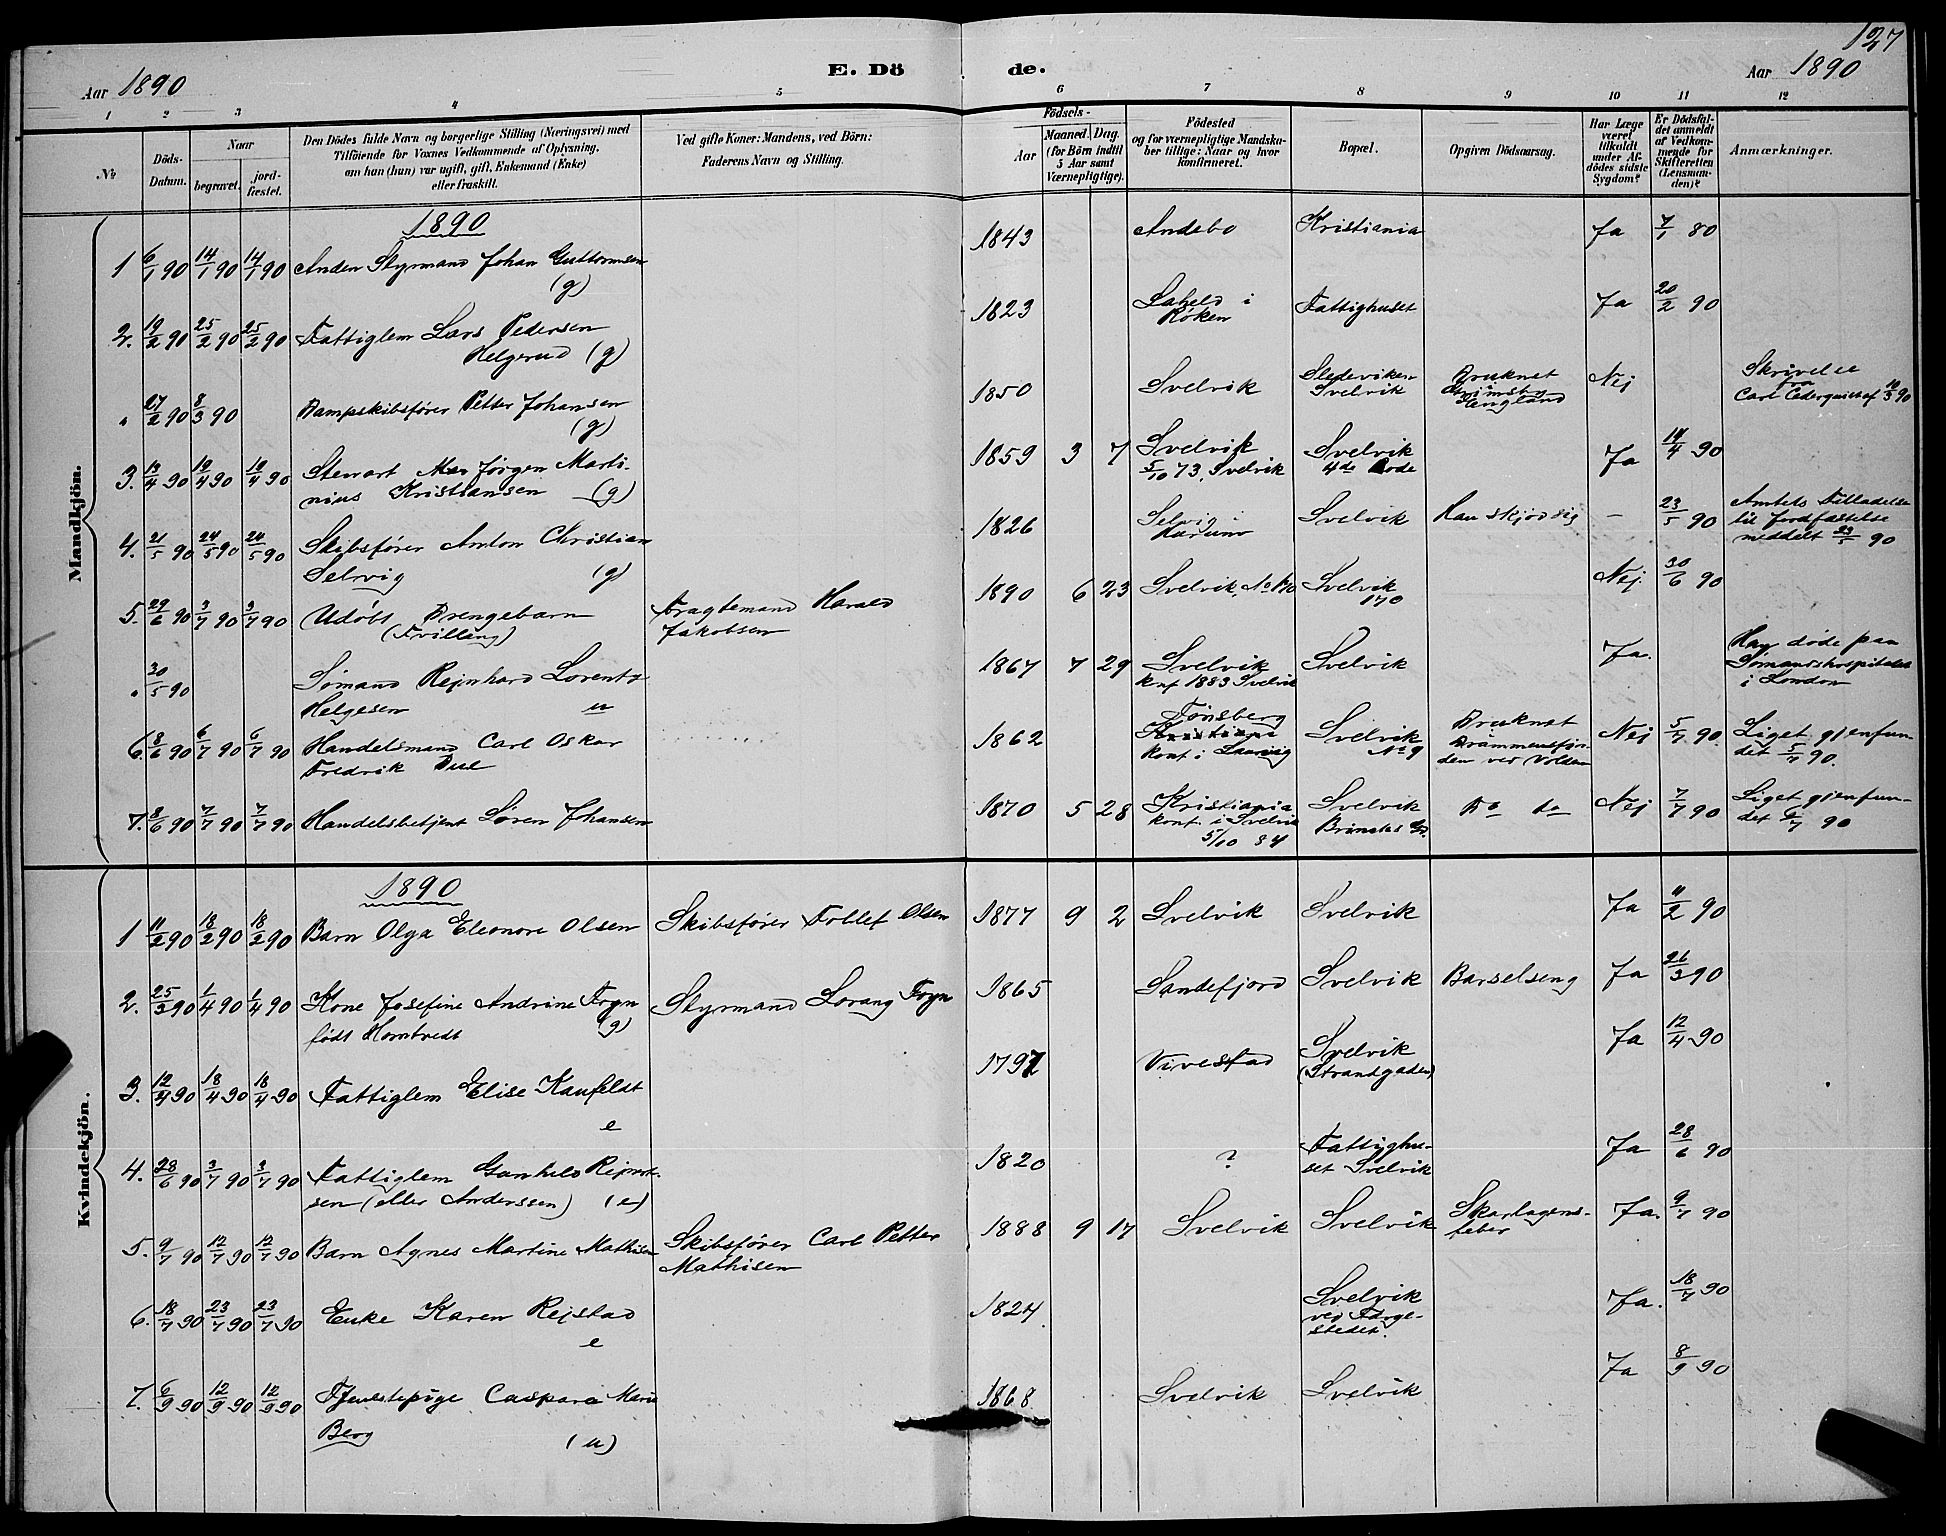 127
Aar 1890
E. Dö
de.
Aar 1890
1 2 3 4 5 6 7 8 9 10 11 12
№
Döds-Datum.
Naar
begravet.
jord-fæstet.
Den Dödes fulde Navn og borgerlige Stilling (Næringsvei) med
Tilföiende for Voxnes Vedkommende af Oplysning,
om han (hun) var ugift, gift, Enkemand (Enke)
eller fraskilt.
Ved gifte Koner: Mandens, ved Börn:
Faderens Navn og Stilling.
Födsels-
Aar
Maaned. Dag.
(for Börn indtil
5 Aar samt
Værnepligtige).
Födested
og for værnepligtige Mandska-
ber tillige: Naar og hvor
konfirmeret.
Bopæl.
Opgiven Dödsaarsag.
Har Læge
været
tilkaldt
under Af-
dödes sidste
Sygdom?
Er Dödsfal-
det anmeldt
af Vedkom-
mende for
Skifteretten
(Lensman-
den)?
Anmærkninger.
Mandkjön.
1890
1 6/1 90 14/1 90 14/1 90 Anden Styrmand Johan Guttormsen (g) 1843 Andebo Kristiania Ja 7/1 80
2. 19/2 90 25/2 90 25/2 90 Fattiglem Lars Pedersen
Helgerud (g) 1823 i
Røken Fattighuset Ja 20/2 90
27/2 90 8/3 90 Dampskibsfører Petter Johansen (g) 1850 Svelvik Sledeviken
Svelvik Druknet
Grimsby
England Nej Skrivelse
fra
Carl 10/3 90
3. 13/4 90 19/4 90 19/4 90 Stewart Jørgen Marti-
nius Kristiansen (g) 1859 3 7 Svelvik
5/10 73, Svelvik Svelvik
4de Rode Ja 14/4 90
4. 21/5 90 24/5 90 24/5 90 Skibsfører Anton Christian
Selvig (g) 1826 Selvig i
Hurum Svelvik Han skjød sig – 23/5 90 Amtets Tilladelse
til Jordfæstelse
meddelt 23/5 90
5. 29/6 90 3/7 90 3/7 90 Udøbt Drengebarn
(Tvilling) Fragtemand Harald
Jakobsen 1890 6 23 Svelvik No 170 Svelvik
170 Nej. 30/6 90
30/5 90 Sømand Rejnhard Lorents
Helgesen u 1867 7 29 Svelvik
knf 1883 Svelvik Svelvik Ja. Han døde paa
Sømandshospitalet
i London
6. 8/6 90 6/7 90 6/7 90 Handelsmand Carl Oskar
Fredrik Due 1862 Tønsberg
Kristiania
konf. i Laurvig Svelvik
No 9 Druknet
Drammensfjor-
den ved Volden Nej 5/7 90. Liget gjenfun-
det 5/7 90.
7. 8/6 90 7/7 90 7/7 90 Handelsbetjent Søren Johansen 1870 5 28 Kristiania
konf. i Svelvik
5/10 84 Svelvik Do do Nej 7/7 90 Liget gjenfun-
det 6/7 90
Kvindekjön.
1890
1 11/2 90 18/2 90 18/2 90 Barn Olga Eleonore Olsen Skibsfører Tollef Olsen 1877 9 2 Svelvik Svelvik Ja 11/2 90
2. 25/3 90 1/4 90 1/4 90 Kone Josefine Andrine Fryn
født Homtvedt (g) Styrmand Lorang Fryn 1865 Sandefjord Svelvik Barselseng Ja 26/3 90
3. 12/4 90 18/4 90 18/4 90 Fattiglem Elise Kaufeldt
e 1797 Vivestad Svelvik
(Strandgaden) Ja 12/4 90
4. 28/6 90 3/7 90 3/7 90 Fattiglem Gunhild Rejnert-
sen (eller Anderssen) (e) 1820 ? Fattighu-
set Svelvik Ja 28/6 90
5. 9/7 90 12/7 90 12/7 90 Barn Agnes Martine Mathisen Skibsfører Carl Petter
Mathisen 1888 9 17 Svelvik Svelvik Skarlagens-
feber Ja. 9/7 90
6. 18/7 90 23/7 90 23/7 90 Enke Karen Rejstad
e 1824 Svelvik
ved Færge-
stedet. Ja. 18/7 90
7. 6/9 90 12/9 90 12/9 90 Tjenestepige Caspara Marie
Berg (u) 1868 Svelvik Svelvik Ja 8/9 90